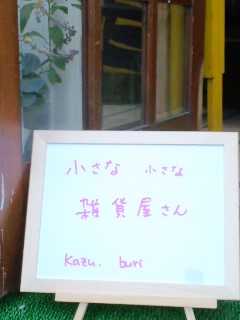 小さな 小さな
雑貨屋さん
Kazu. buri